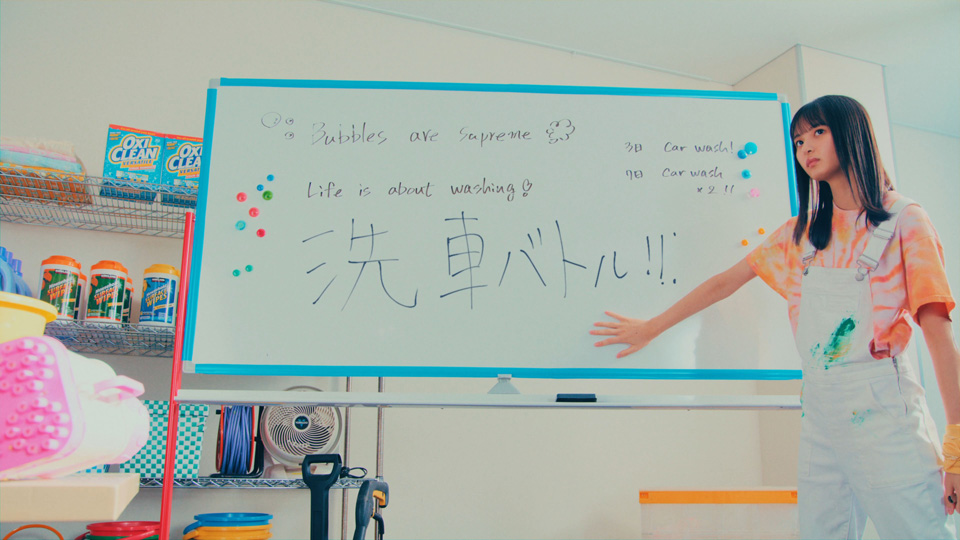 Bubbles are sapreme
Life is about washing!
洗車バトル!!
3日 Car wash!
7日 Car wash
×2!!
OXI
CLEAN
VERSATILE
OXI
CLEAN
WIPES